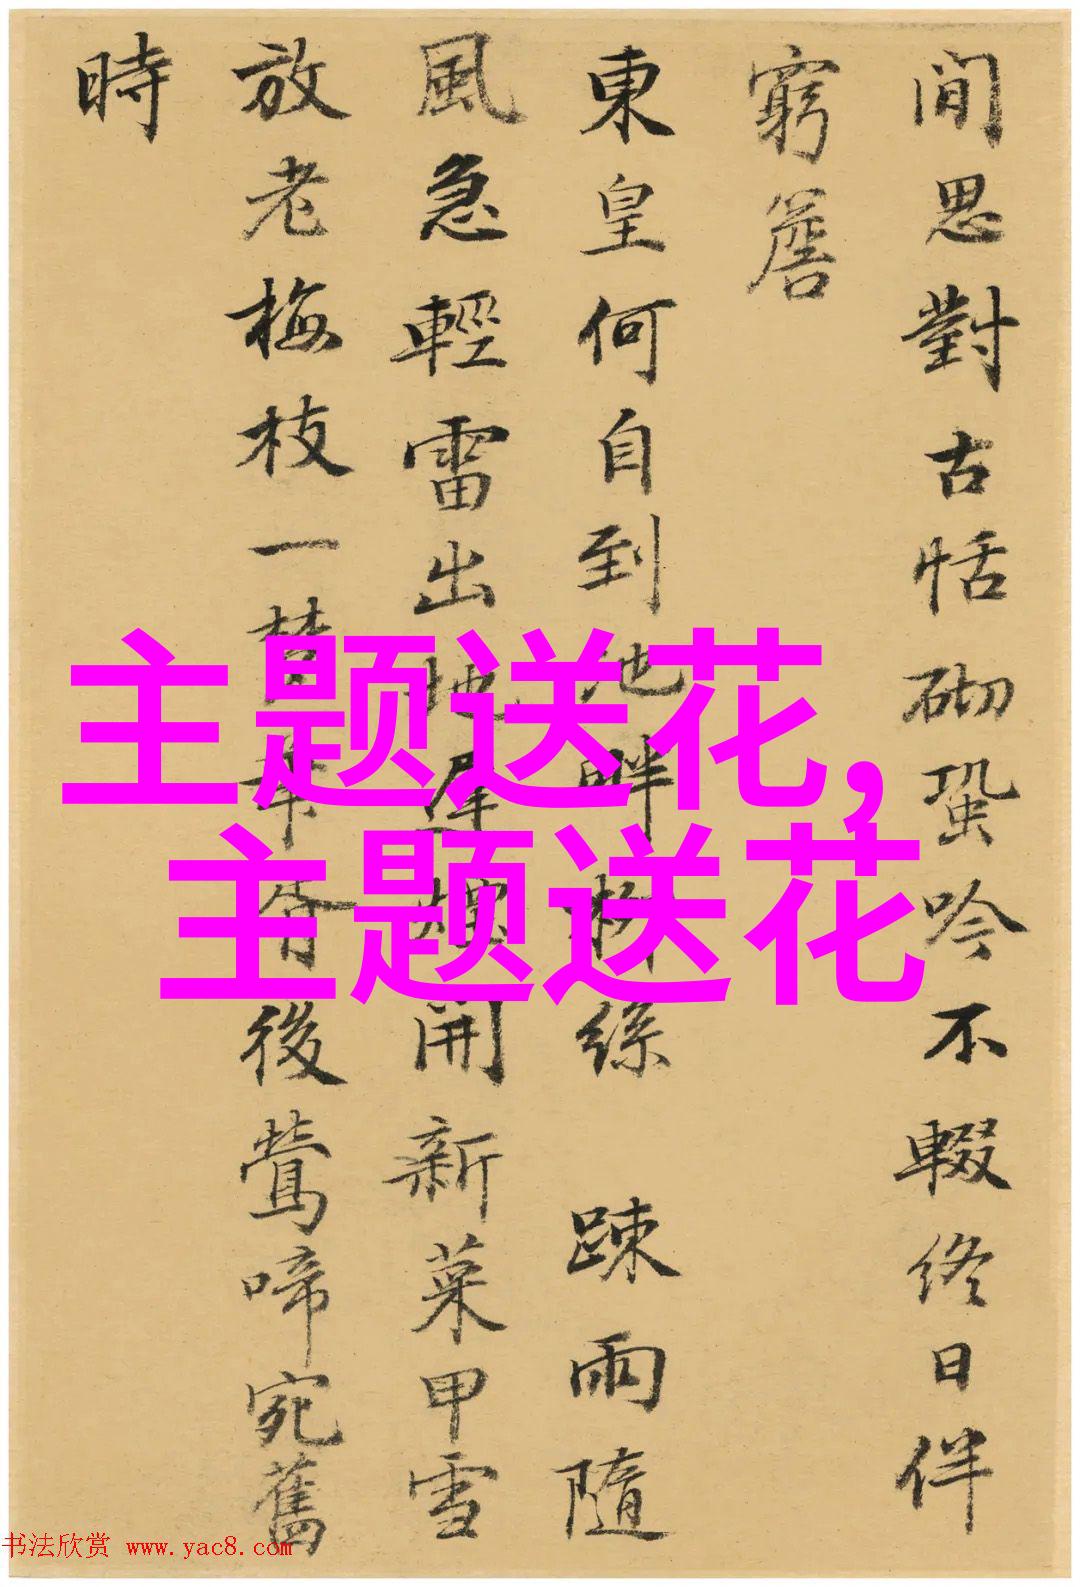 間思對古恬砌蛩吟不輟終日伴
窮簷
東皇何自到池畔柳絲 踈雨隨
風急輕雷出地遲煖開新菜甲雪
放老梅枝一後鶯啼宛舊
時
主题送花,
主题送花
书法欣赏 www.yac8.com